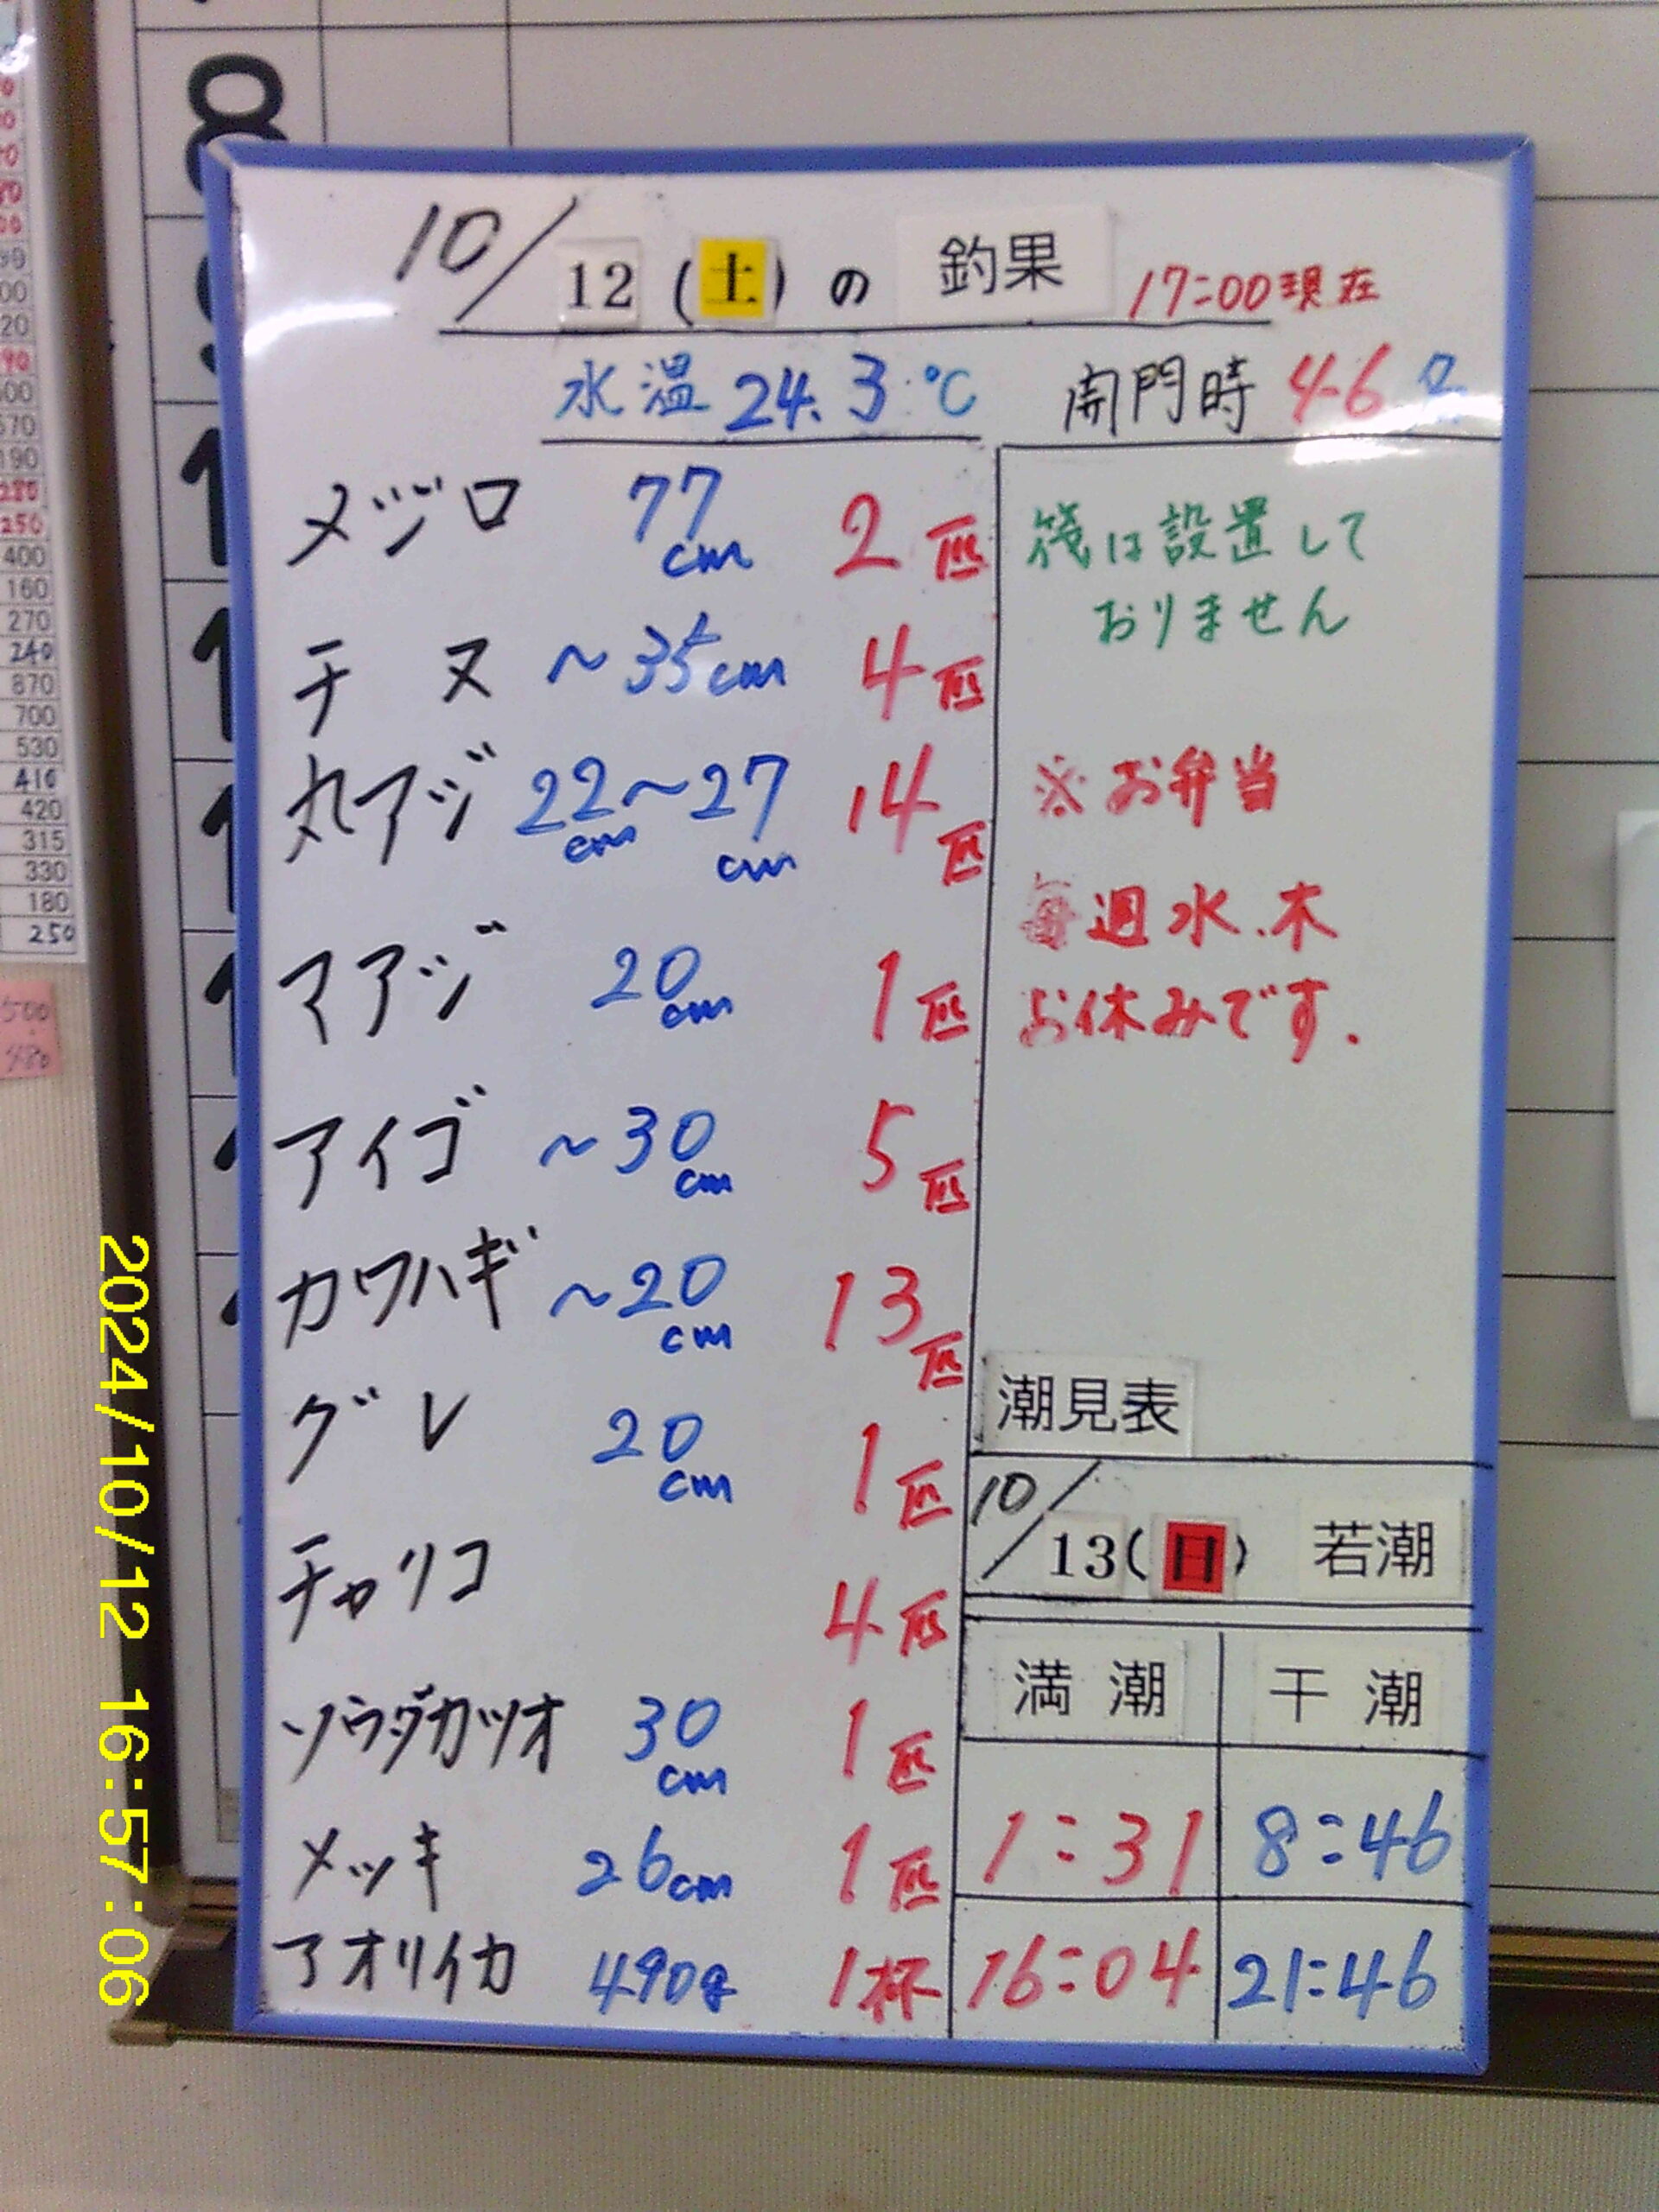 10/12(土)の 釣果 17:00現在
水温 24.3℃ 開門時 46名
メジロ 77cm 2匹
チヌ ~35cm 4匹
丸アジ 22cm~27cm 14匹
マアジ 20cm 1匹
アイゴ ~30cm 5匹
カワハギ ~20cm 13匹
グレ 20cm 1匹
チャリコ 4匹
ソウダカツオ 30cm 1匹
メッキ 26cm 1匹
アオリイカ 490g 1杯
筏は設置して
おりません
※お弁当
毎週水.木
お休みです.
潮見表
10/13(日) 若潮
満潮 干潮
1:31 8:46
16:04 21:46
2024/10/12 16:57:06
8
400
160
270
240
870
700
530
410
420
315
330
180
250